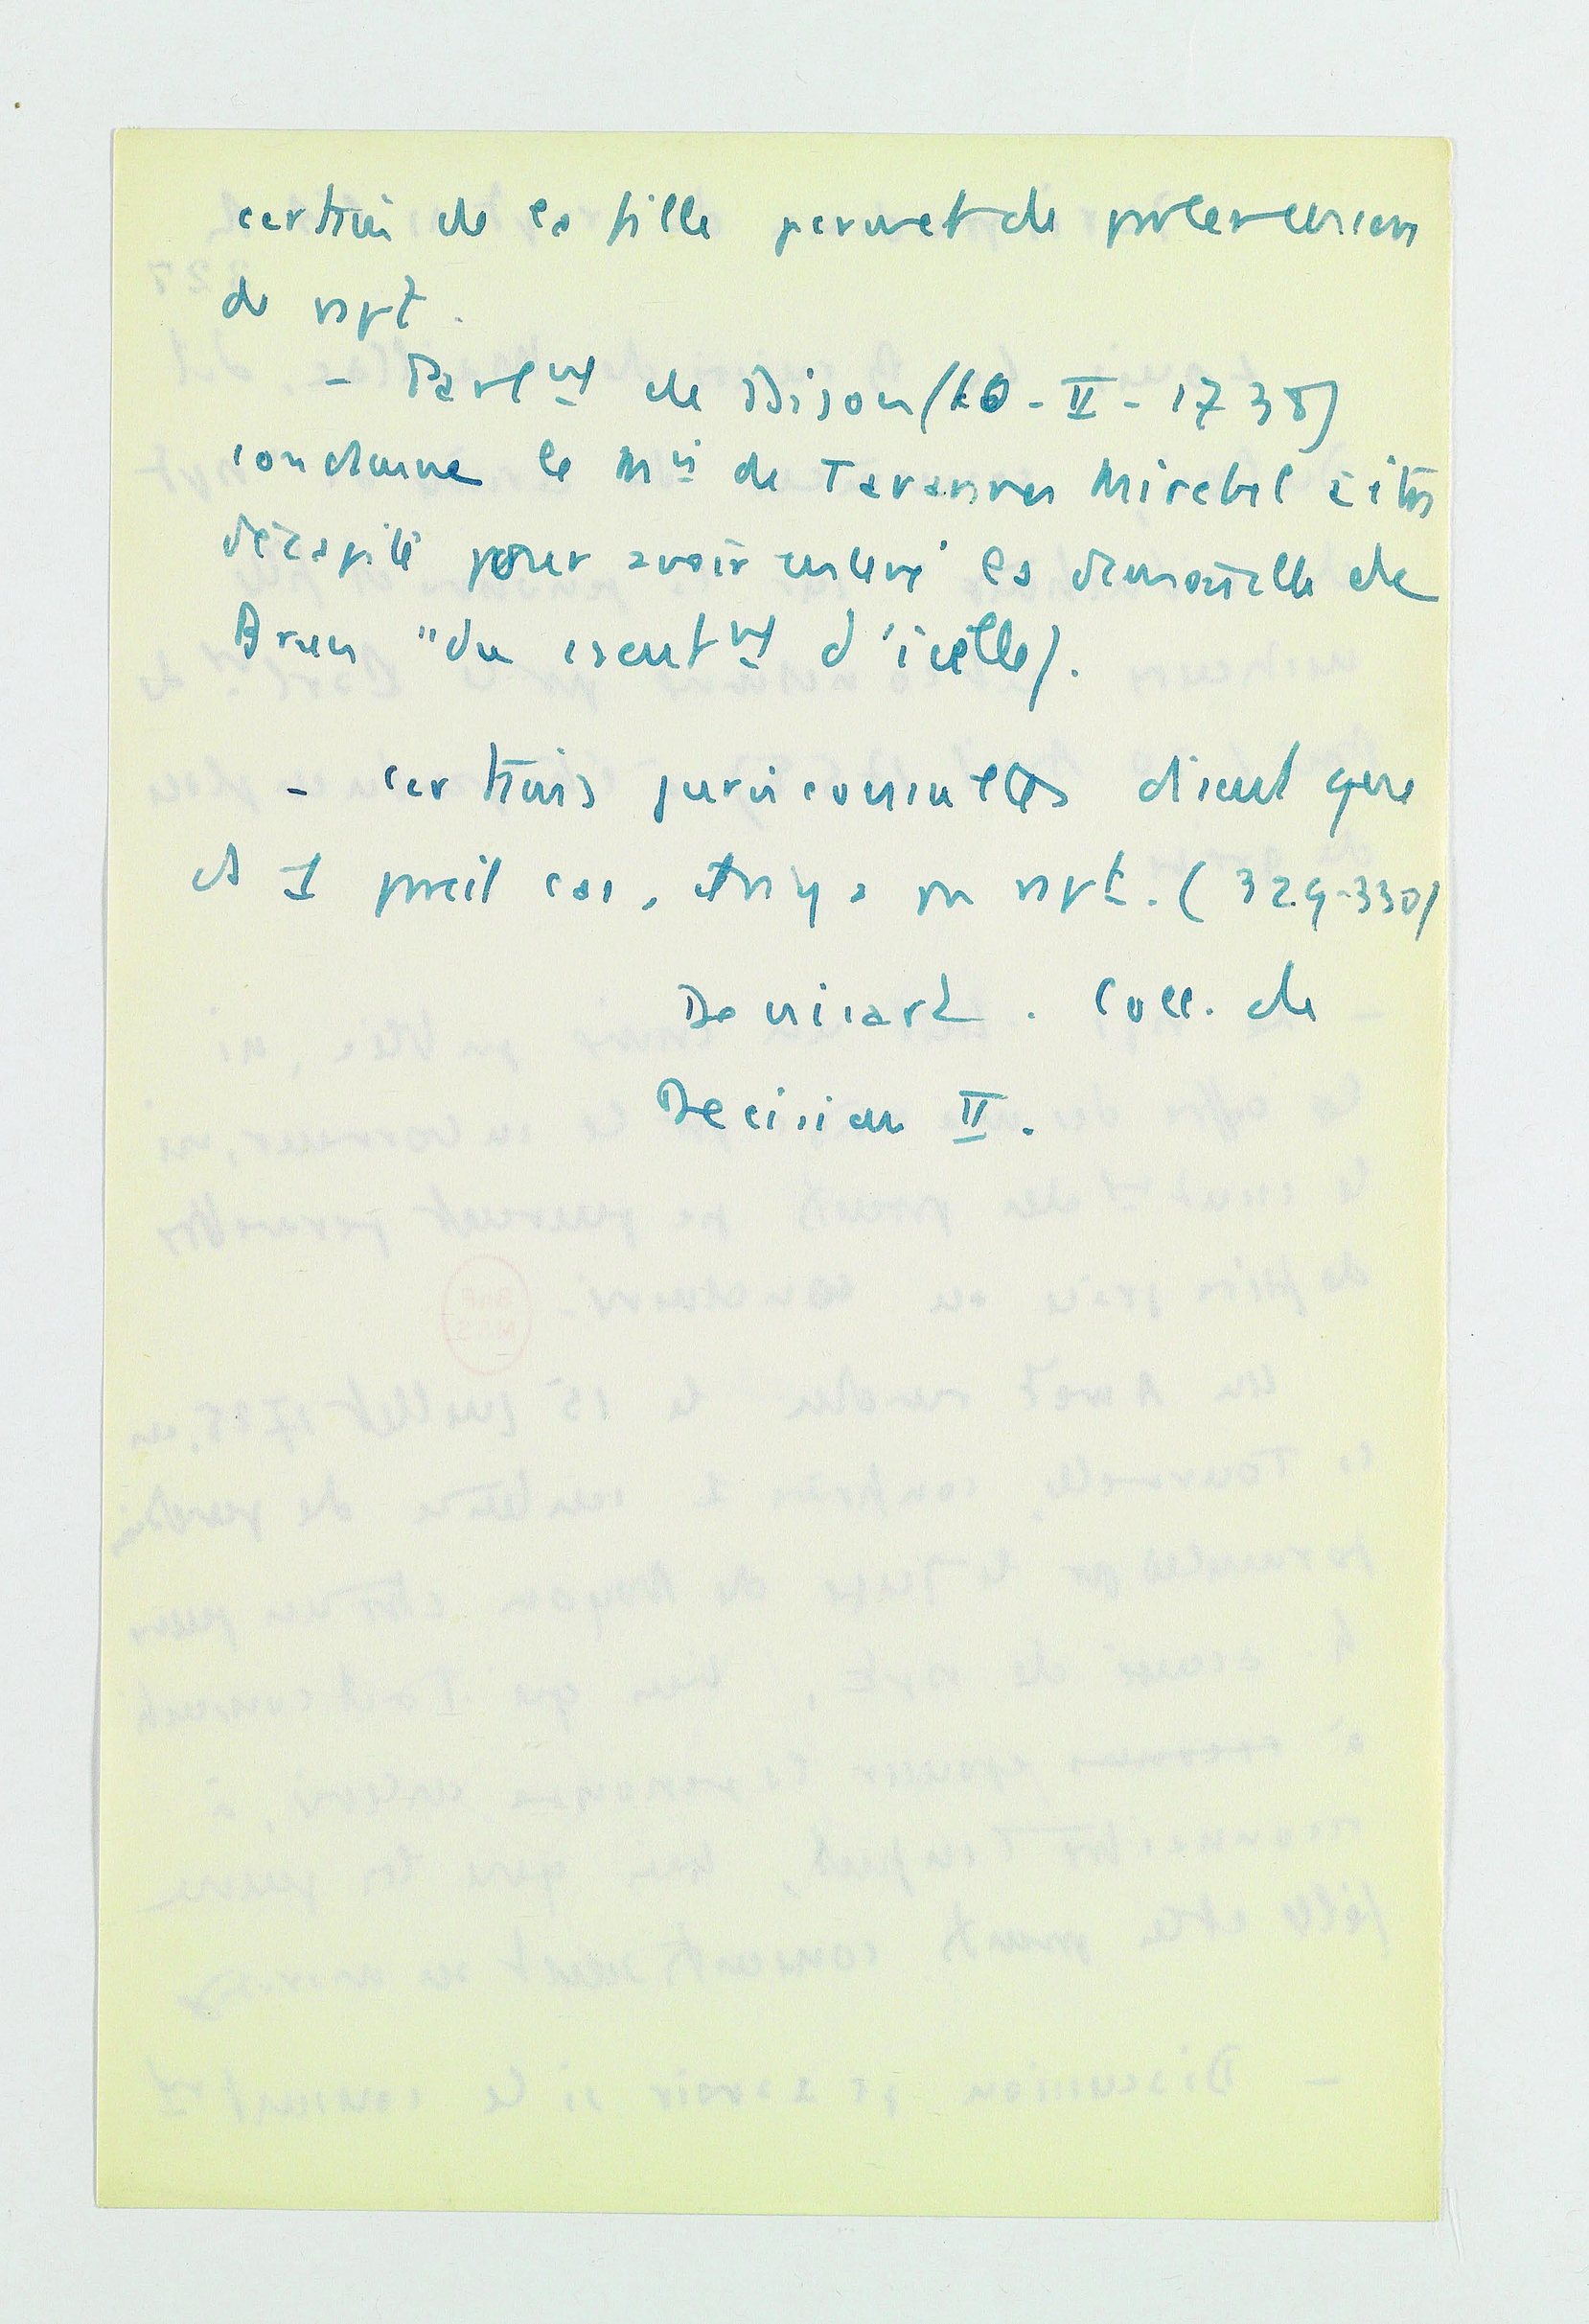 certain de la fille permet de parler encore
de rapt.
- Parl^mt de Dijon (10-II-1738)
condamne le M^is de Tavannes Mirebel à être
décapité pour avoir enlevé la demoiselle de
Brun "du consent^mt d'icelle).
- Certains jurisconsultes disent que
ds 1 pareil cas, il n'y a pas rapt. (329-330)
Denisart. Coll. de
Decision II.